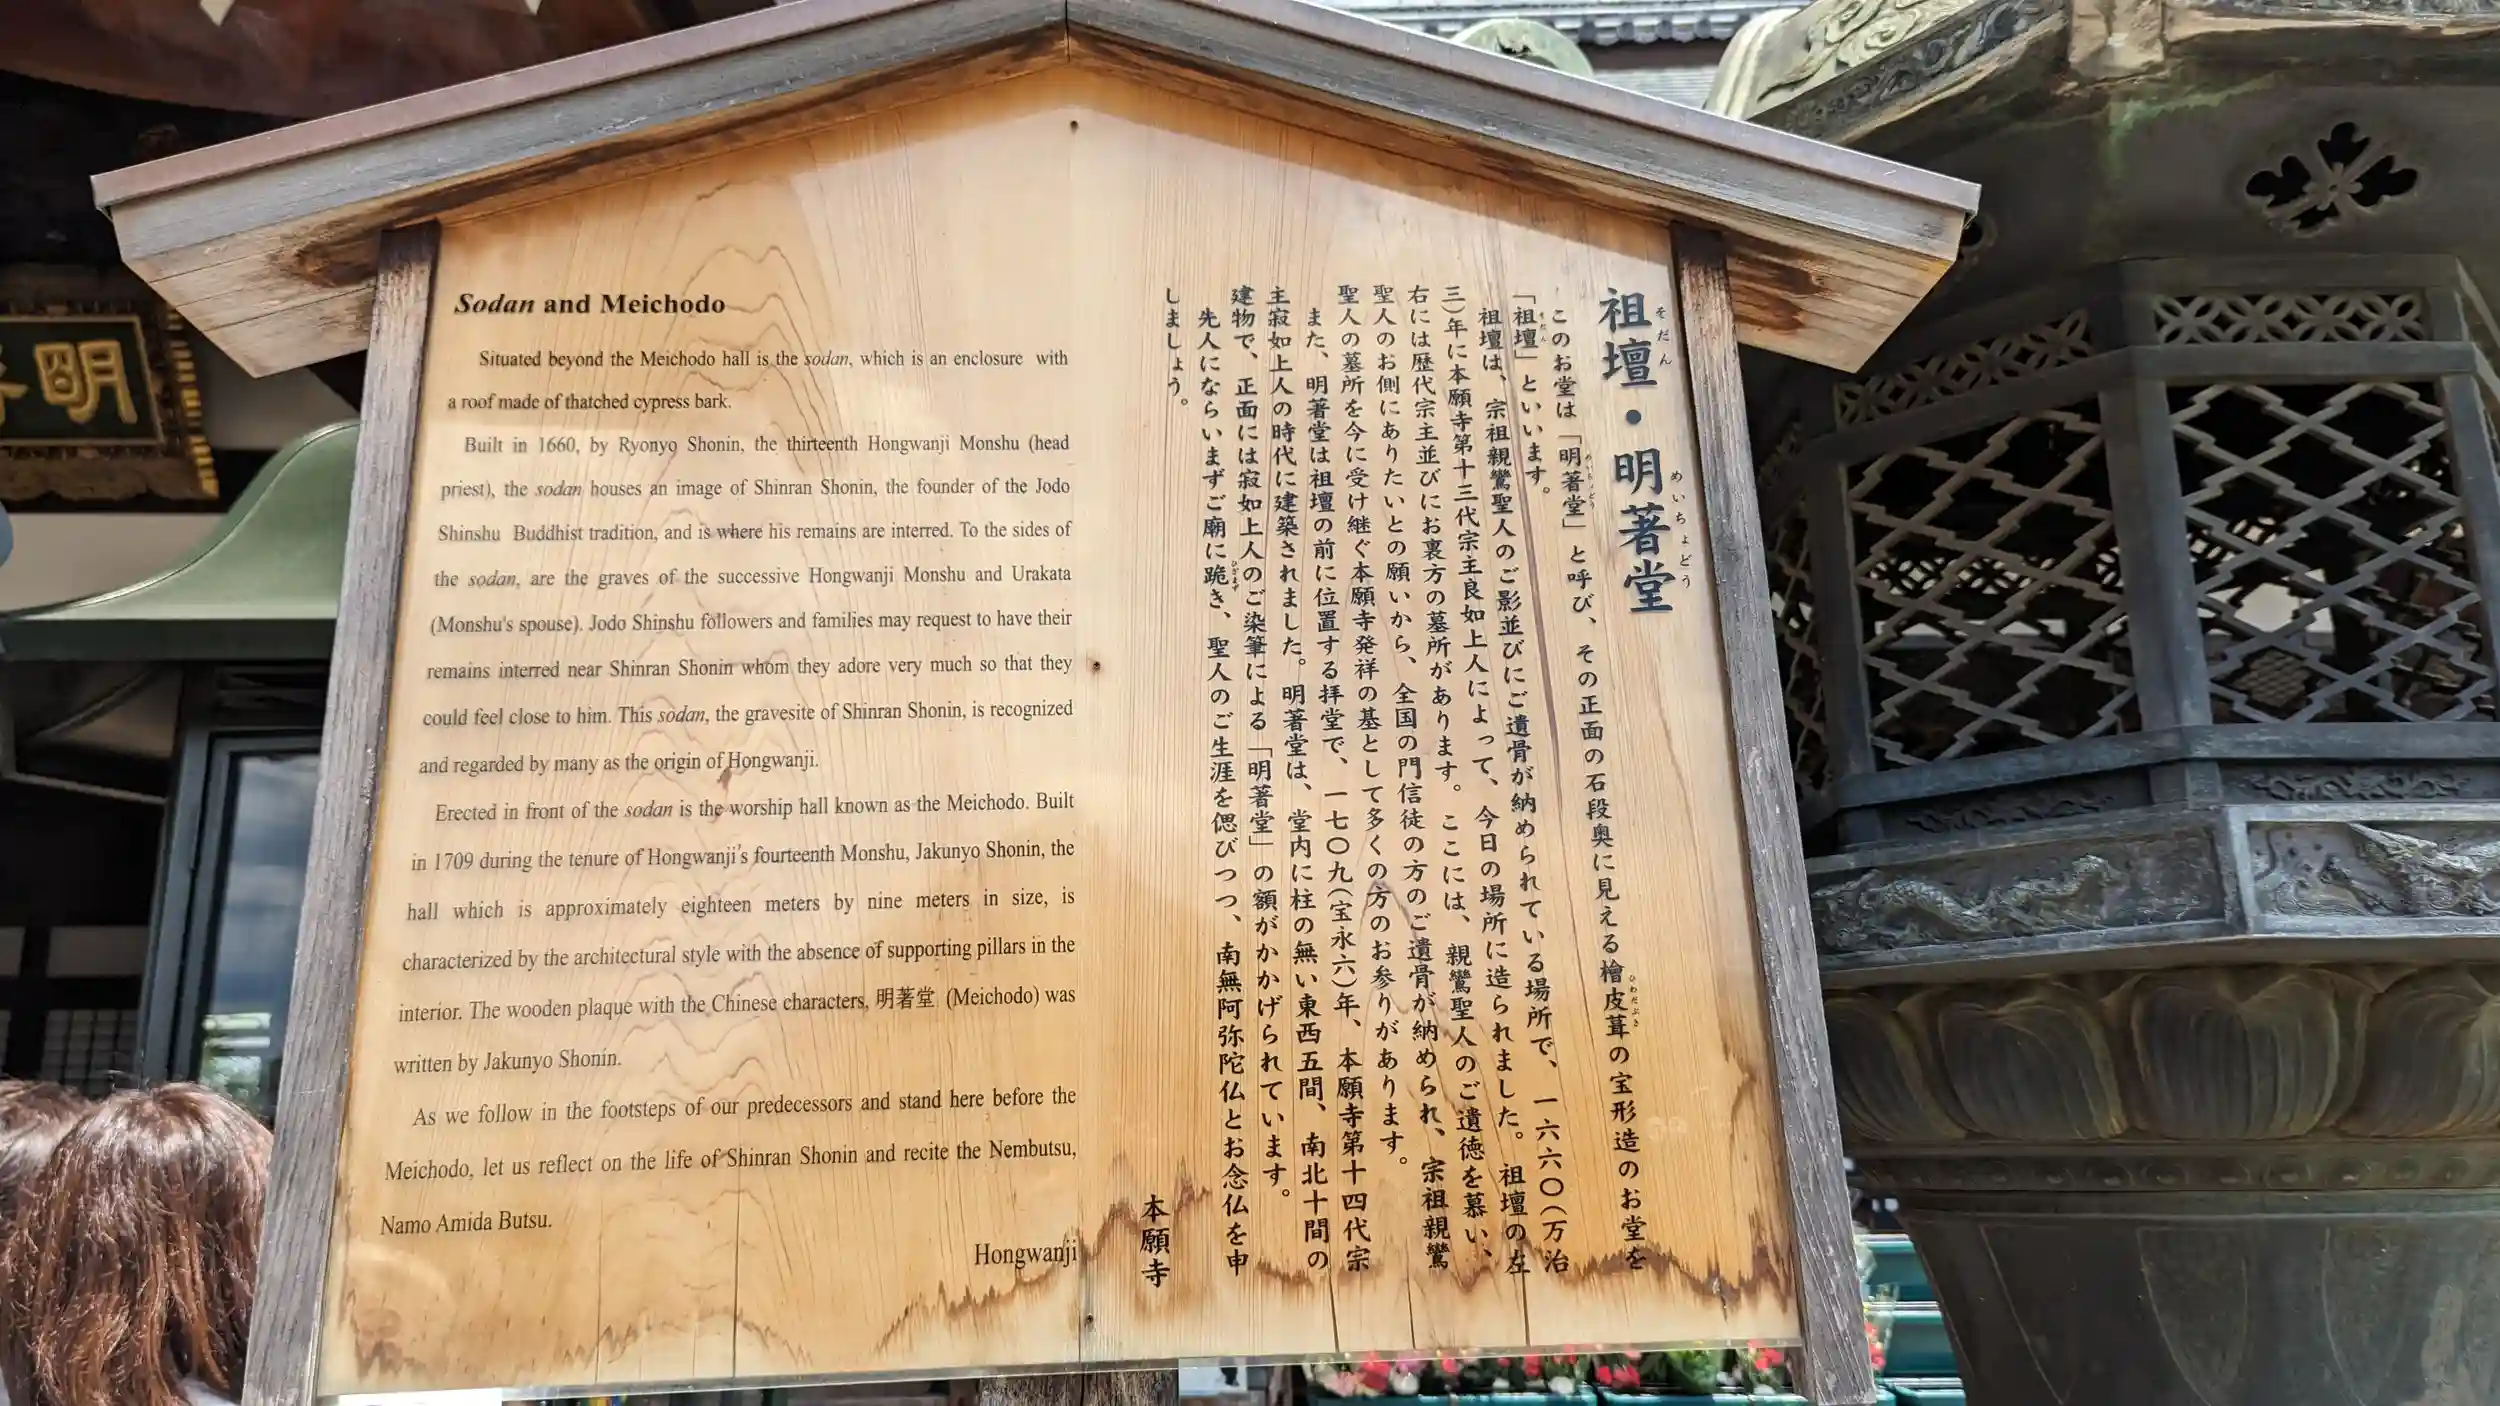 Sodan and Meichodo
Situated beyond the Meichodo hall is the sodan, which is an enclosure with
a roof made of thatched cypress bark.
Built in 1660, by Ryonyo Shonin, the thirteenth Hongwanji Monshu (head
priest), the sodan houses an image of Shinran Shonin, the founder of the Jodo
Shinshu Buddhist tradition, and is where his remains are interred. To the sides of
the sodan, are the graves of the successive Hongwanji Monshu and Urakata
(Monshu's spouse). Jodo Shinshu followers and families may request to have their
remains interred near Shinran Shonin whom they adore very much so that they
could feel close to him. This sodan, the gravesite of Shinran Shonin, is recognized
and regarded by many as the origin of Hongwanji.
Erected in front of the sodan is the worship hall known as the Meichodo. Built
in 1709 during the tenure of Hongwanji's fourteenth Monshu, Jakunyo Shonin, the
hall which is approximately eighteen meters by nine meters in size, is
characterized by the architectural style with the absence of supporting pillars in the
interior. The wooden plaque with the Chinese characters, 明著堂 (Meichodo) was
written by Jakunyo Shonin.
As we follow in the footsteps of our predecessors and stand here before the
Meichodo, let us reflect on the life of Shinran Shonin and recite the Nembutsu,
Namo Amida Butsu.
Hongwanji
祖壇・明著堂
そだん めいちょどう
このお堂は「明著堂」と呼び、その正面の石段奥に見える檜皮葺の宝形造のお堂を
めいちょどう ひわだぶき
「祖壇」といいます。
そだん
祖壇は、宗祖親鸞聖人のご影並びにご遺骨が納められている場所で、一六六〇(万治
三)年に本願寺第十三代宗主良如上人によって、今日の場所に造られました。祖壇の左
右には歴代宗主並びにお裏方の墓所があります。ここには、親鸞聖人のご遺徳を慕い、
聖人のお側にありたいとの願いから、全国の門信徒の方のご遺骨が納められ、宗祖親鸞
聖人の墓所を今に受け継ぐ本願寺発祥の基として多くの方のお参りがあります。
また、明著堂は祖壇の前に位置する拝堂で、一七〇九(宝永六)年、本願寺第十四代宗
主寂如上人の時代に建築されました。明著堂は、堂内に柱の無い東西五間、南北十間の
建物で、正面には寂如上人のご染筆による「明著堂」の額がかかげられています。
先人にならいまずご廟に跪き、聖人のご生涯を偲びつつ、南無阿弥陀仏とお念仏を申
ひざまず
しましょう。
本願寺
明